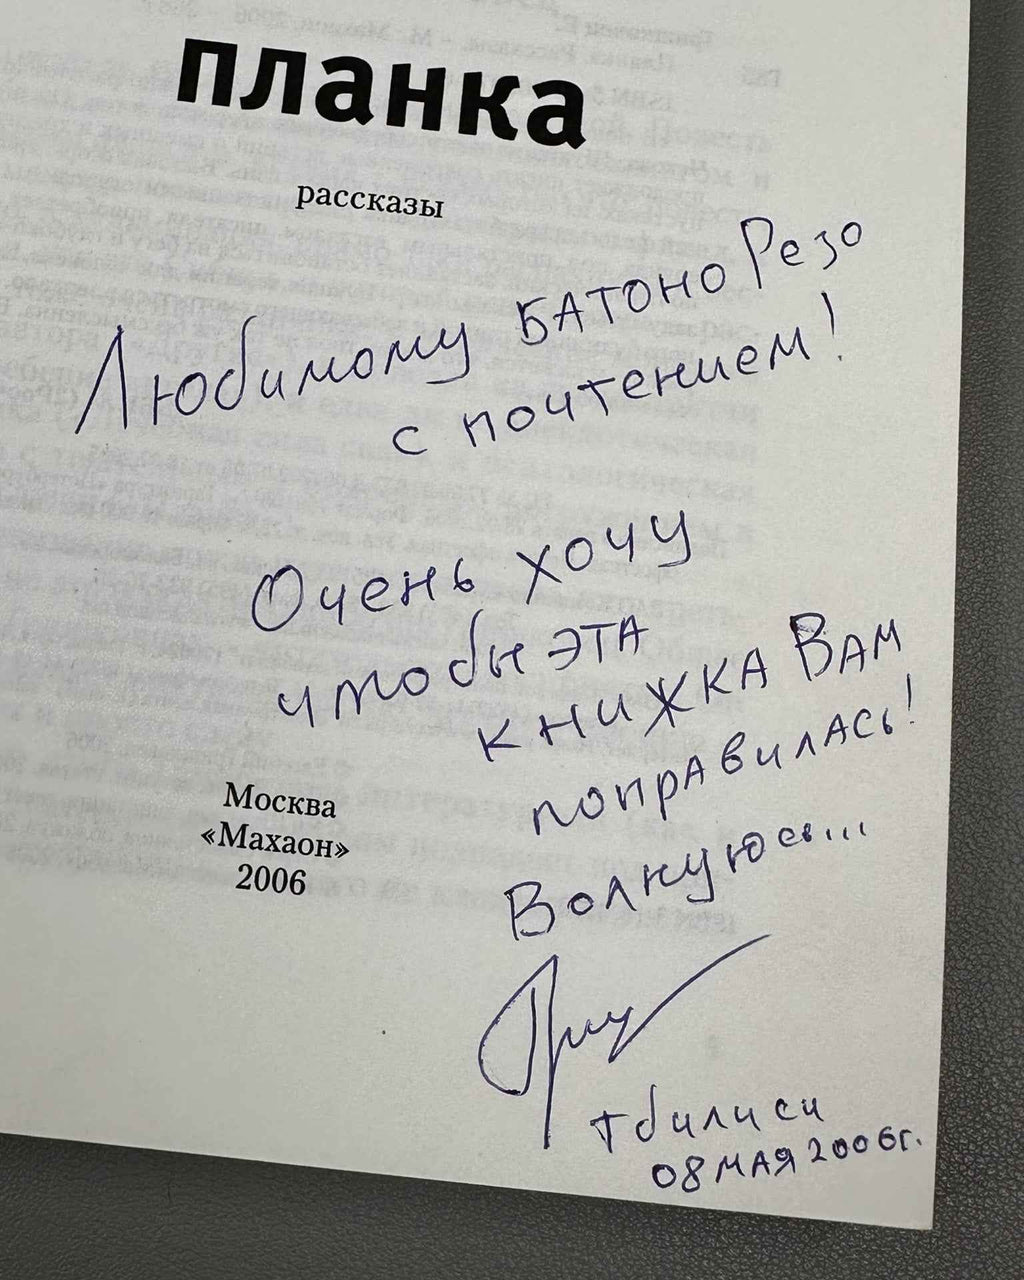 планка
рассказы
Любимому БАТОНО Резо
с почтением!
Очень хочу
чтобы ЭТА
КНИЖКА ВАМ
ПОПРАВИЛАСЬ!
Волнуюсь...
Москва
«Махаон»
2006
Тбилиси
08 МАЯ 2006г.